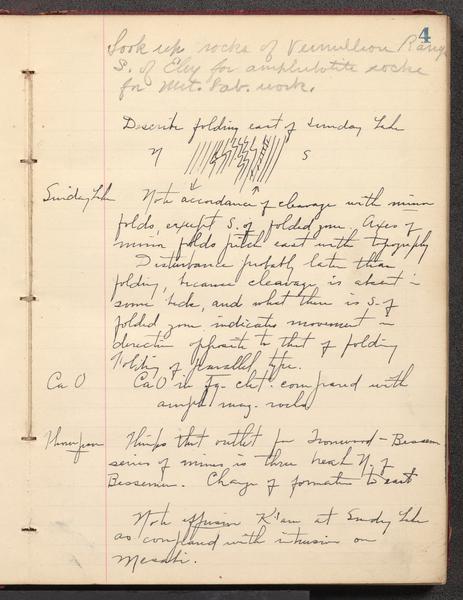 4
Look up rocks of Vermillion Range
S. of Ely for amphibolitic rocks
for Met. Lab. work.
Describe folding east of Sunday Lake
N S
Sunday Lake Note accordance of cleavage with minor
folds, except S. of folded zone. Axes of
minor folds pitch east with topography
Disturbance probably later than
folding, because cleavage is absent in
some beds, and what there is S. of
folded zone indicates movement in
direction opposite to that of folding
Folding of parallel type.
CaO CaO in fg. chl. compared with
amph. mag. rocks
Thinks that outlet for Ironwood - Bessemer
series of mines is thru break N. of
Bessemer. Change of formation to east
Note effusive K'aw at Sunday Lake
as compared with intrusive on
Mesabi.